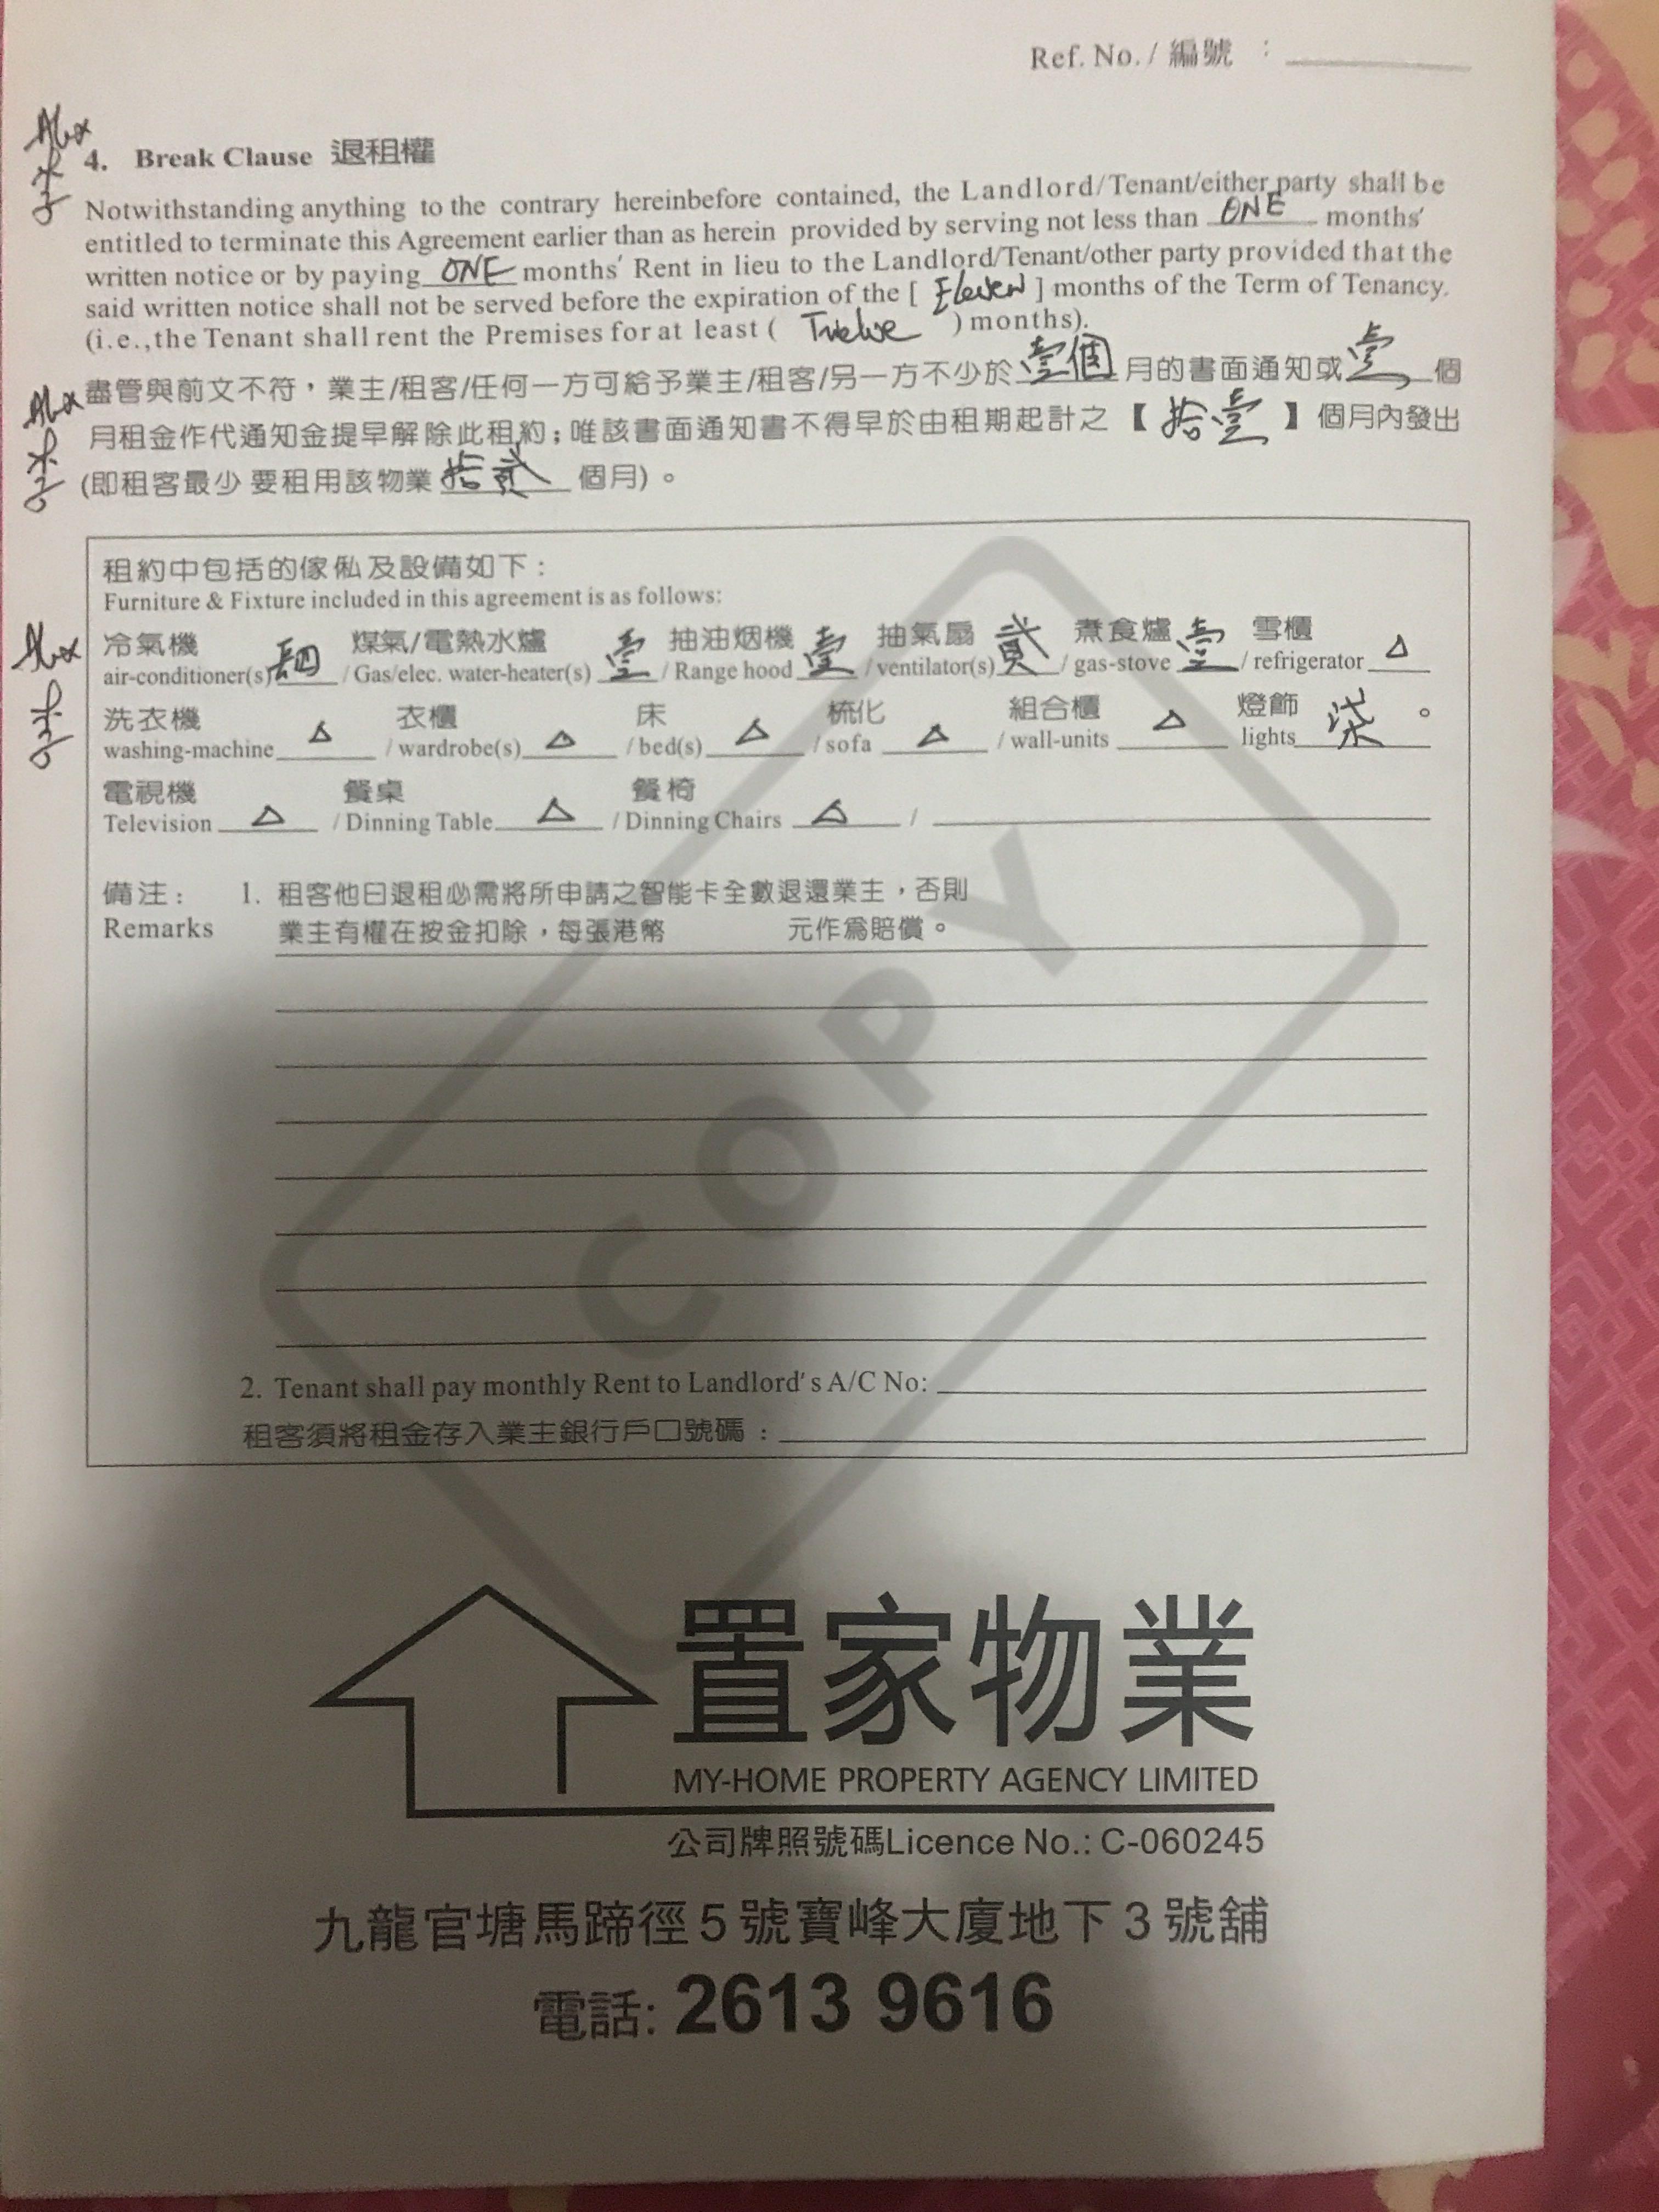 Ref. No. / 編號 :
Alex
4. Break Clause 退租權
Notwithstanding anything to the contrary hereinbefore contained, the Landlord/Tenant/either party shall be
entitled to terminate this Agreement earlier than as herein provided by serving not less than ONE months'
written notice or by paying ONE months' Rent in lieu to the Landlord/Tenant/other party provided that the
said written notice shall not be served before the expiration of the [ Eleven ] months of the Term of Tenancy.
(i.e.,the Tenant shall rent the Premises for at least ( Twelve ) months).
Alex
盡管與前文不符，業主/租客/任何一方可給予業主/租客/另一方不少於壹個月的書面通知或壹個
月租金作代通知金提早解除此租約；唯該書面通知書不得早於由租期起計之【拾壹】個月內發出
(即租客最少要租用該物業拾貳個月)。
租約中包括的傢俬及設備如下：
Furniture & Fixture included in this agreement is as follows:
Alex
冷氣機 煤氣/電熱水爐 抽油烟機 抽氣扇 煮食爐 雪櫃
air-conditioner(s) 肆 / Gas/elec. water-heater(s) 壹 / Range hood 壹 / ventilator(s) 貳 / gas-stove 壹 / refrigerator △
洗衣機 衣櫃 床 梳化 組合櫃 燈飾
washing-machine △ / wardrobe(s) △ / bed(s) △ / sofa △ / wall-units △ lights 柒 。
電視機 餐桌 餐椅
Television △ / Dinning Table △ / Dinning Chairs △ /
備注： 1. 租客他日退租必需將所申請之智能卡全數退還業主，否則
Remarks 業主有權在按金扣除，每張港幣 元作為賠償。
COPY
2. Tenant shall pay monthly Rent to Landlord's A/C No:
租客須將租金存入業主銀行戶口號碼：
置家物業
MY-HOME PROPERTY AGENCY LIMITED
公司牌照號碼Licence No.: C-060245
九龍官塘馬蹄徑5號寶峰大廈地下3號舖
電話: 2613 9616